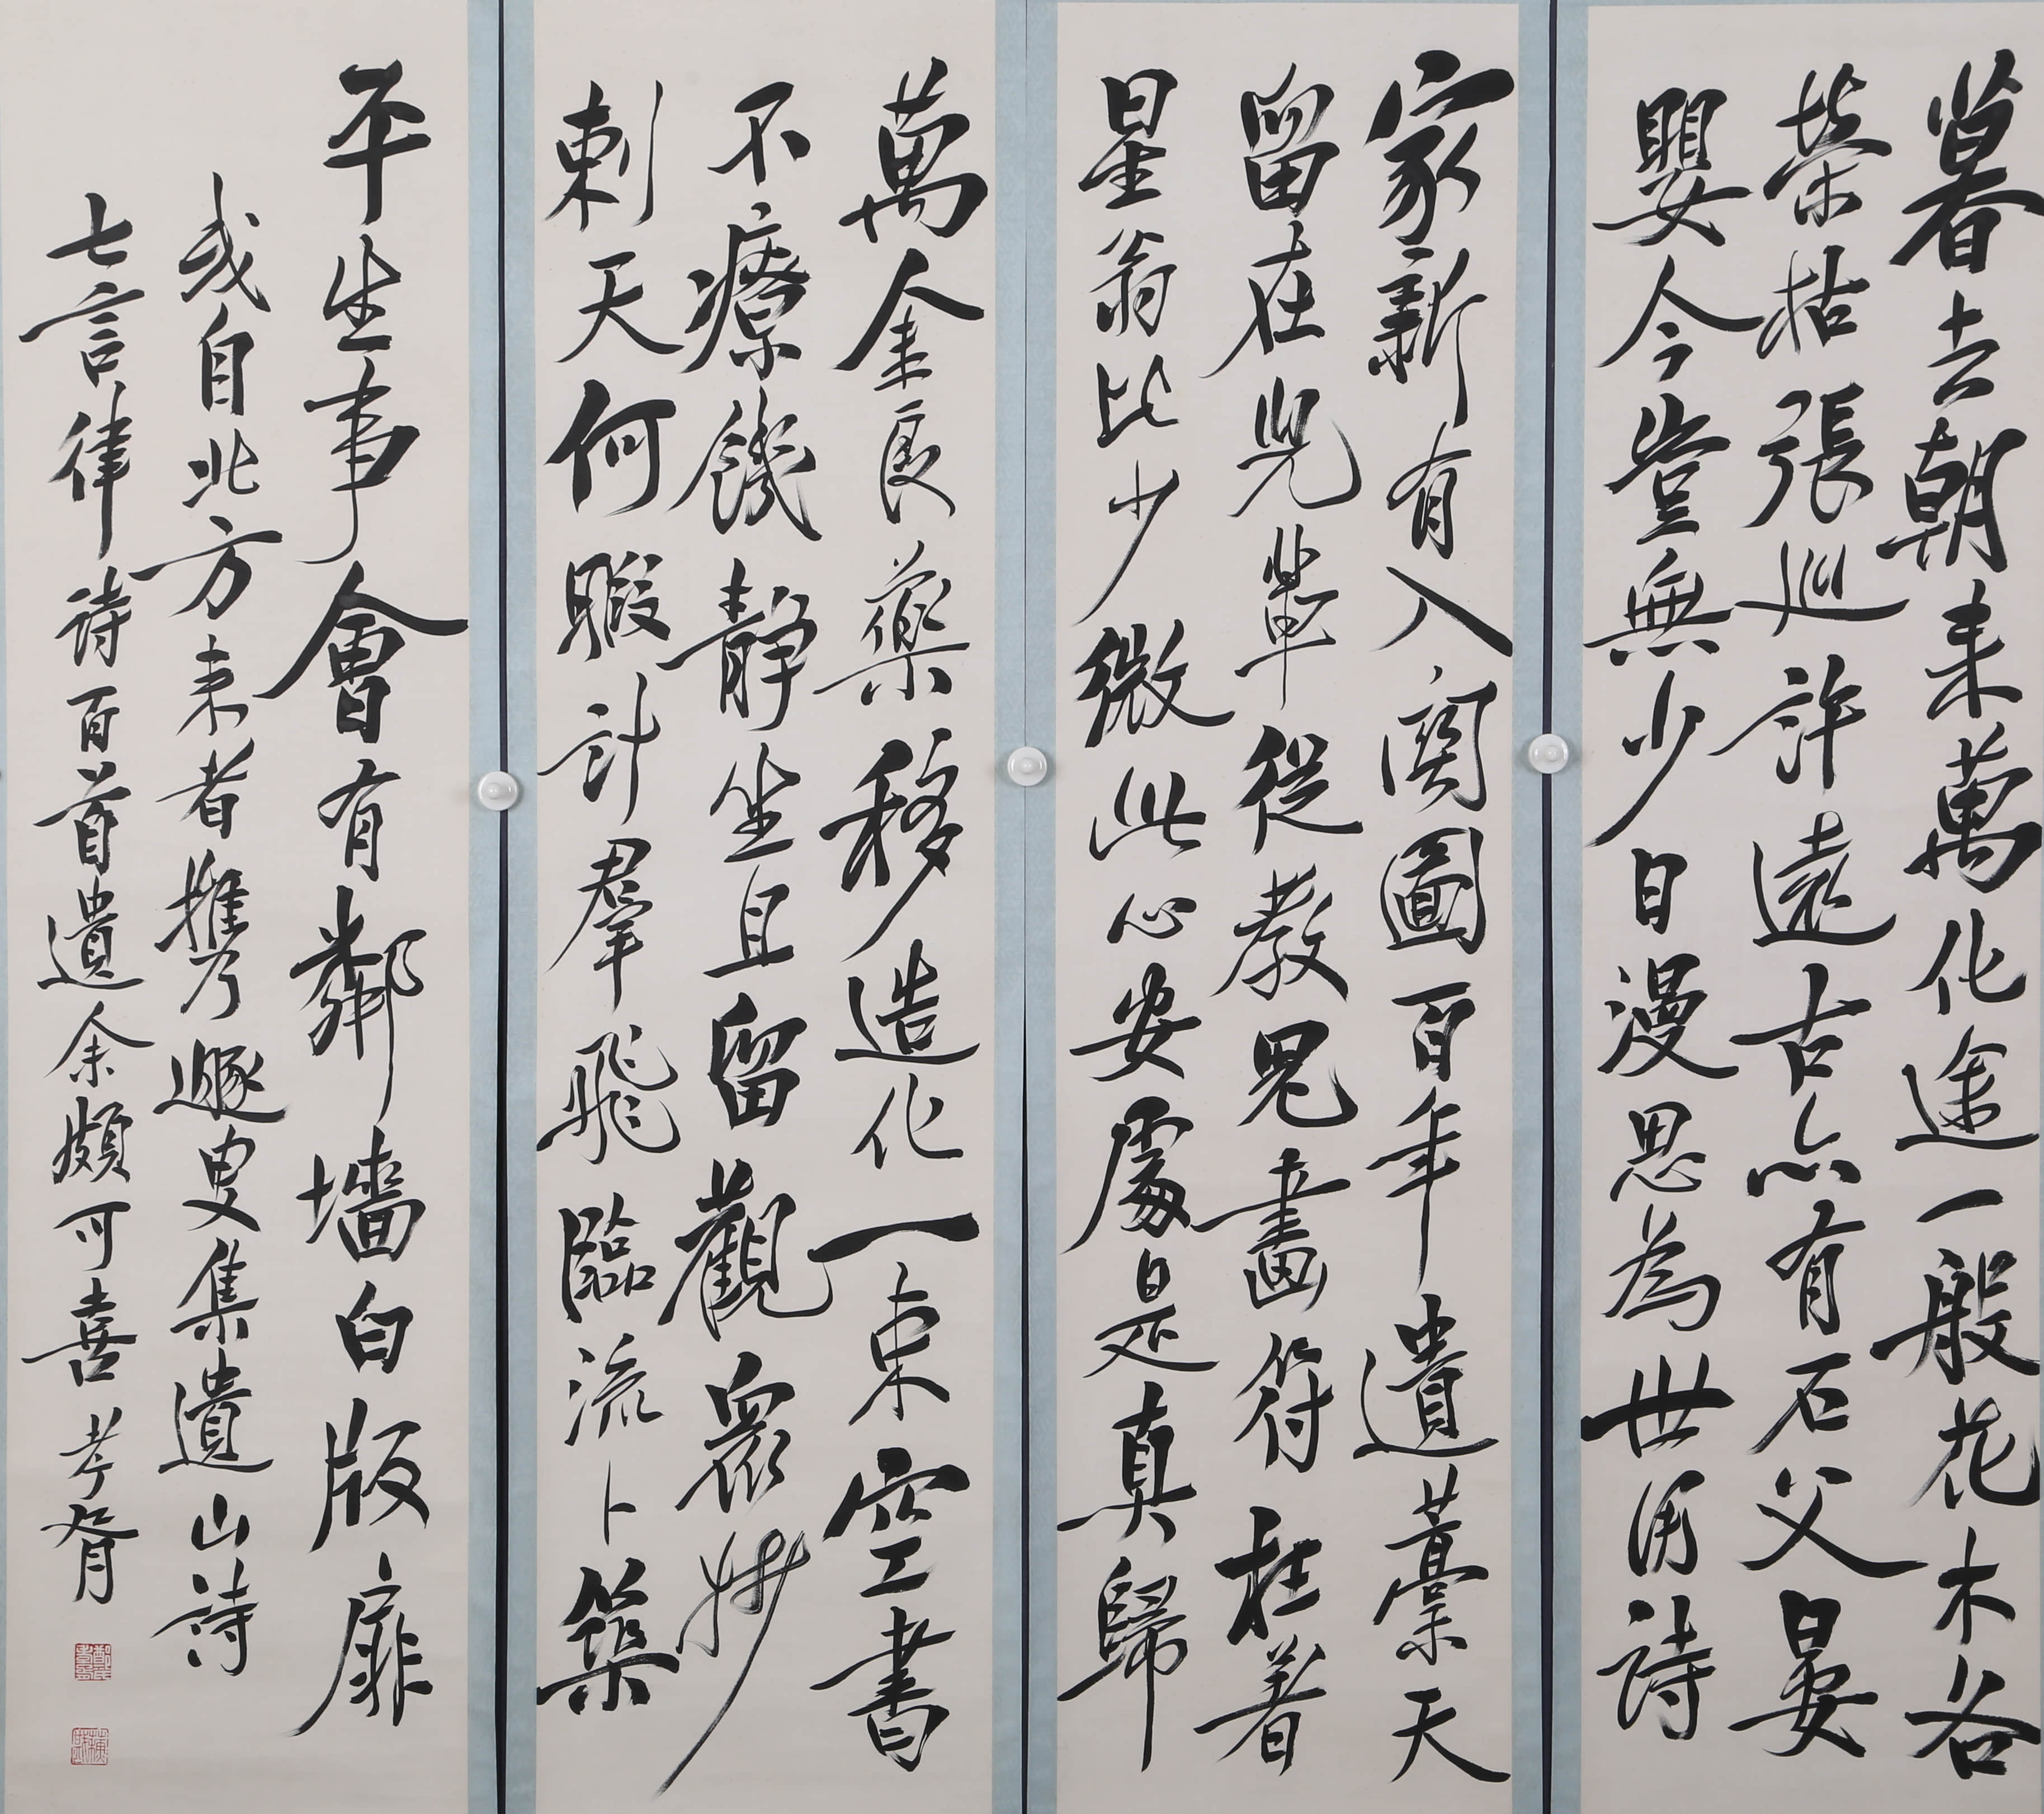 暮去朝来萬化途一般花木各
榮枯張巡許遠古亦有石父晏
嬰今豈無少日漫思為世用詩
家新有入關圖百年遺藁天
留在兒輩從教鬼畫符枉著
星翁比少微此心安處是真歸
萬金良藥移造化一束空書
不療饑靜坐且留觀眾妙
刺天何暇計羣飛臨流卜築
平生事會有鄰墻白版扉
或自北方来者攜乃遯叟集遺山詩
七言律詩百首遺余頗可喜 孝胥